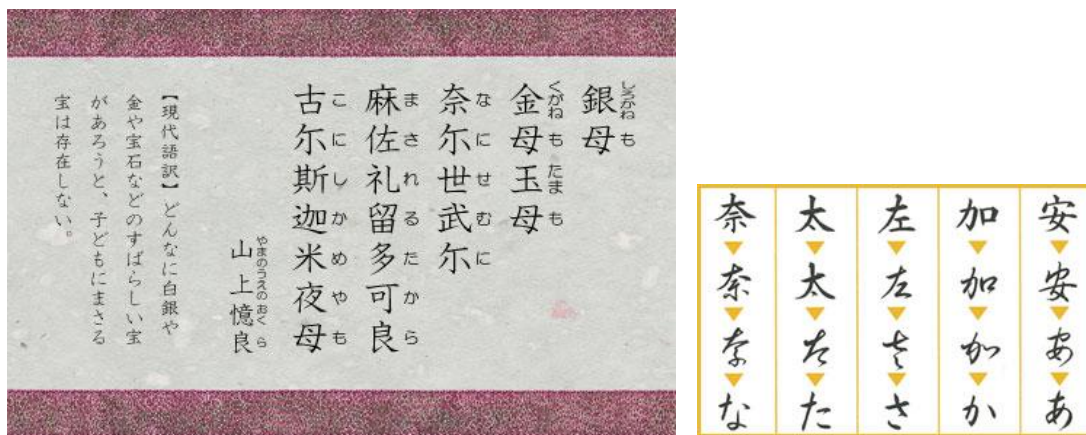 銀母
しろかねも
金母玉母
くがねもたまも
奈尓世武尓
なにせむに
麻佐礼留多可良
まされるたから
古尓斯迦米夜母
こにしかめやも
山上憶良
やまのうえのおくら
【現代語訳】どんなに白銀や
金や宝石などのすばらしい宝
があろうと、子どもにまさる
宝は存在しない。
安▼安▼安▼あ
加▼加▼か▼か
左▼左▼さ▼さ
太▼太▼た▼た
奈▼奈▼な▼な